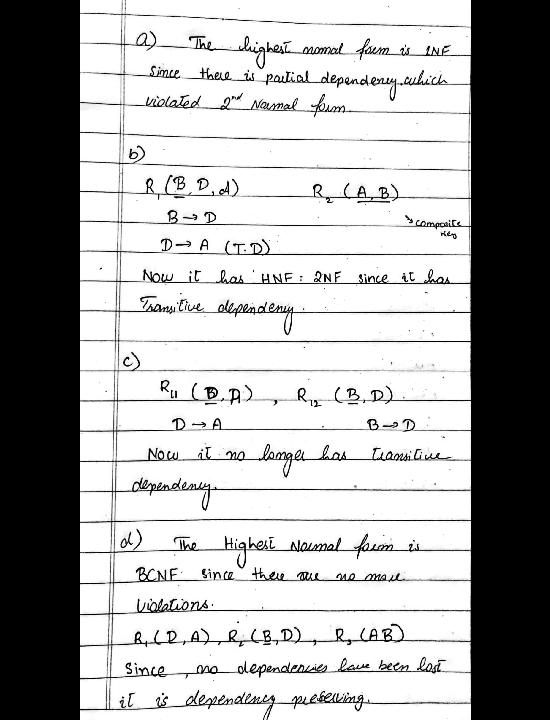 a) The highest normal form is 1NF
Since there is partial dependency which
violated 2nd Normal form.
b)
R1 (B, D, A) R2 (A, B)
B → D ↘ composite
key
D → A (T.D)
Now it has HNF : 2NF since it has
Transitive dependency.
c)
R11 (D, A) , R12 (B, D)
D → A B → D
Now it no longer has transitive
dependency.
d) The Highest Normal form is
BCNF since there are no more
violations.
R1 (D, A) , R2 (B, D) , R3 (AB)
Since , no dependencies have been lost
it is dependency preserving.